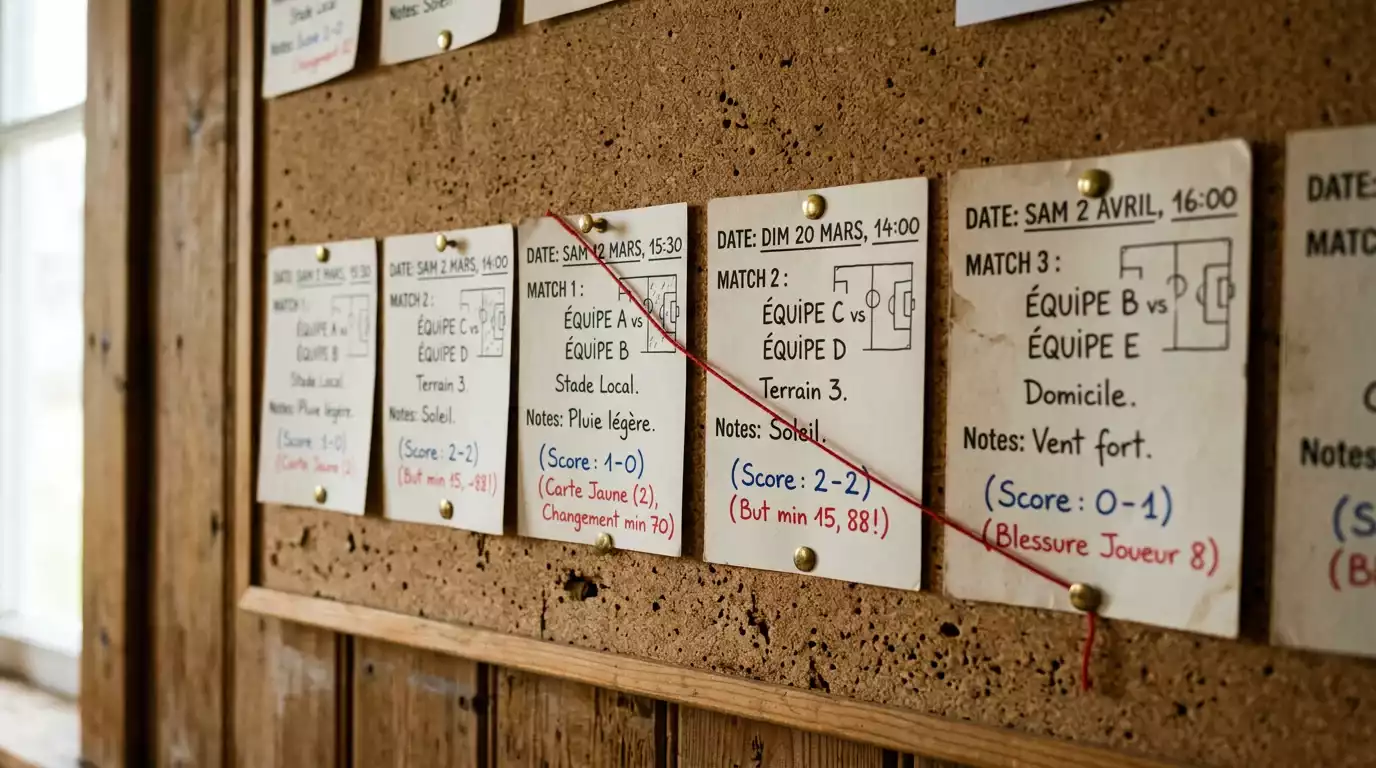 Stade Local.
Notes:
Notes: Soleil.
MATCH 1 :
ÉQUIPE A vs
ÉQUIPE B
Stade Local.
Notes: Pluie légère.
(Score : 1-0)
(Carte Jaune
DATE: SAM 2 MARS, 14:00
MATCH 2 :
ÉQUIPE C vs
ÉQUIPE D
Terrain 3.
Notes: Soleil.
(Score : 2-2)
(But min 15, -88!)
DATE: SAM 12 MARS, 15:30
MATCH 1 :
ÉQUIPE A vs
ÉQUIPE B
Stade Local.
Notes: Pluie légère.
(Score : 1-0)
(Carte Jaune (2),
Changement min 70)
DATE: DIM 20 MARS, 14:00
MATCH 2 :
ÉQUIPE C vs
ÉQUIPE D
Terrain 3.
Notes: Soleil.
(Score : 2-2)
(But min 15, 88!)
DATE: SAM 2 AVRIL, 16:00
MATCH 3 :
ÉQUIPE B vs
ÉQUIPE E
Domicile.
Notes: Vent fort.
(Score : 0-1)
(Blessure Joueur 8)
DATE:
MATC
Notes